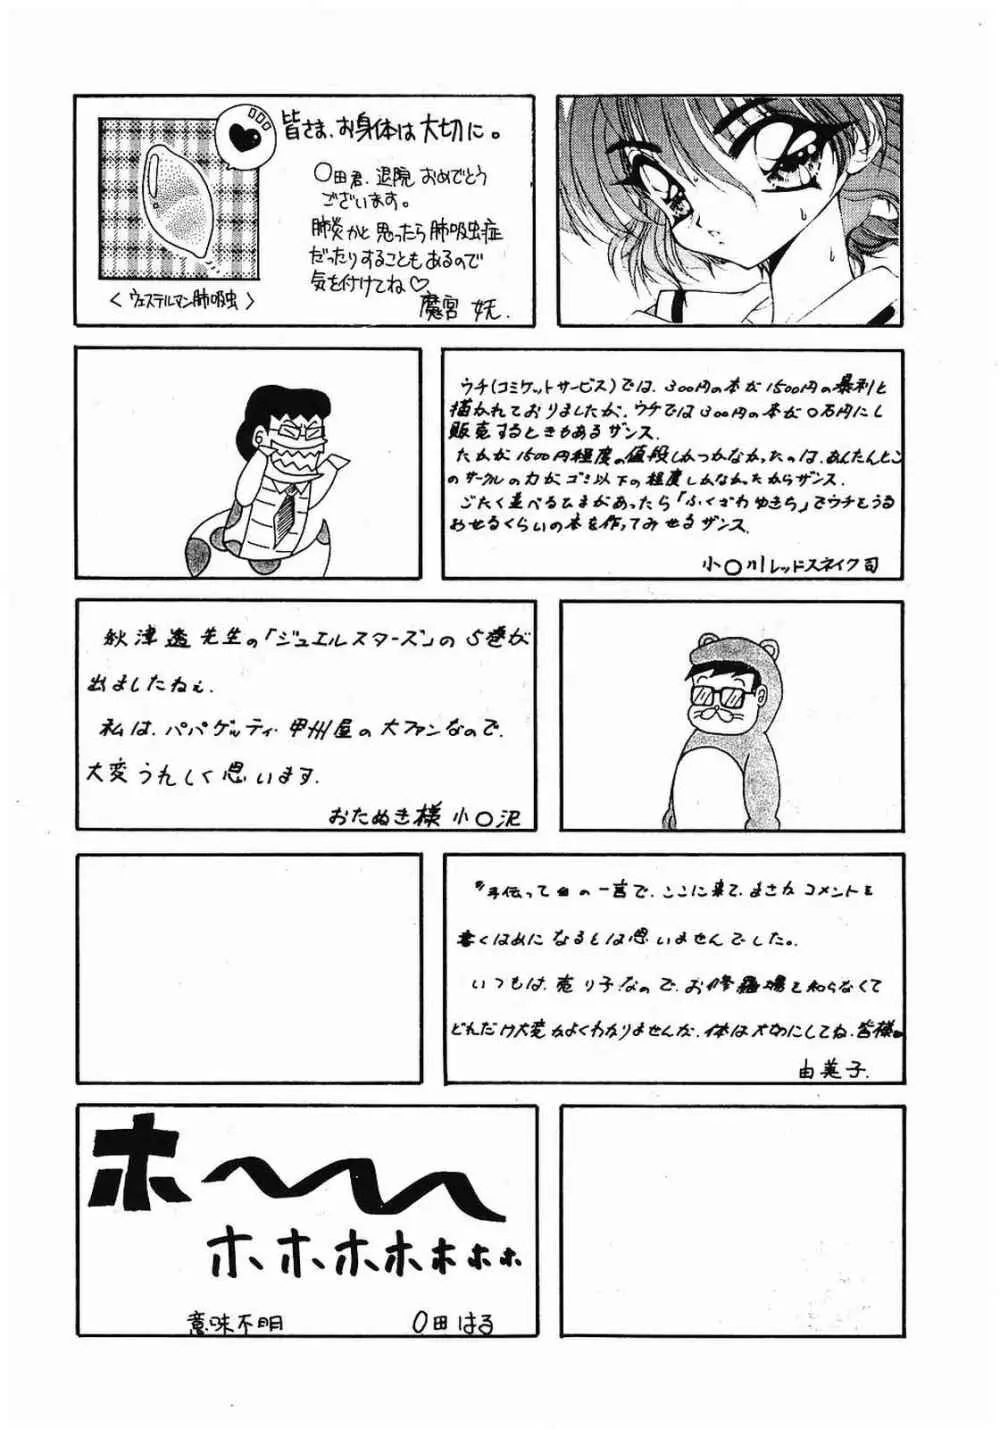 皆さま、お身体は大切に。
〇田君、退院おめでとう
ございます。
肺炎かと思ったら肺吸虫症
だったりすることもあるので
気を付けてね♡
魔宮 妖.
<ウェステルマン肺吸虫>
ウチ(コミケットサービス)では、300円の本が1500円の暴利と
描かれておりましたが、ウチでは300円の本が〇万円にし
販売するときもあるザンス.
たかが1500円程度の値段しかつかなかったのは、あんたんとこ
のサークルの力がゴミ以下の程度しかなかったからザンス.
ごたく並べるひまがあったら「ふくざわゆきち」でウチをうる
おせるくらいの本を作ってみせるザンス.
小〇川レッドスネイク司
秋津透先生の「ジュエルスターズ」の5巻が
出ましたねぇ.
私は、パパゲッティ・甲州屋の大ファンなので、
大変うれしく思います.
おたぬき様 小〇沢
手伝って の一言で、ここに来て、まさかコメントを
書くはめになるとは思いませんでした。
いつもは、売り子なので、お修羅場を知らなくて
どれだけ大変かよくわかりませんが、体は大切にしてね、皆様。
由美子.
ホ〜
ホ、ホ、ホホホホホ
意味不明 〇田はる